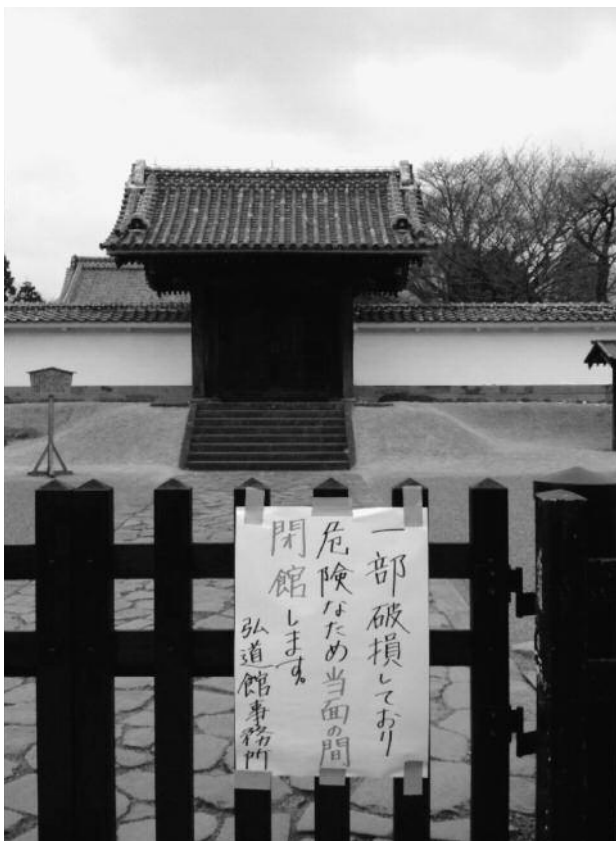 一部破損しており
危険なため当面の間
閉館します。
弘道館事務所